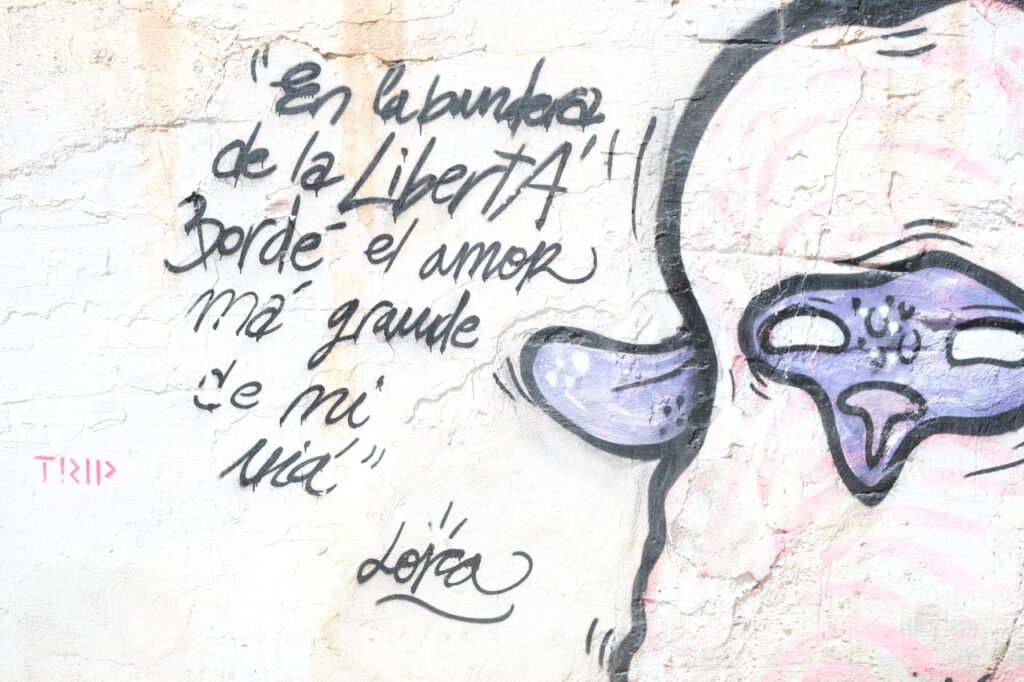 "En la bandera
de la LibertA'
Bordé el amor
má grande
de mi
viá"
Lorca
TRIP